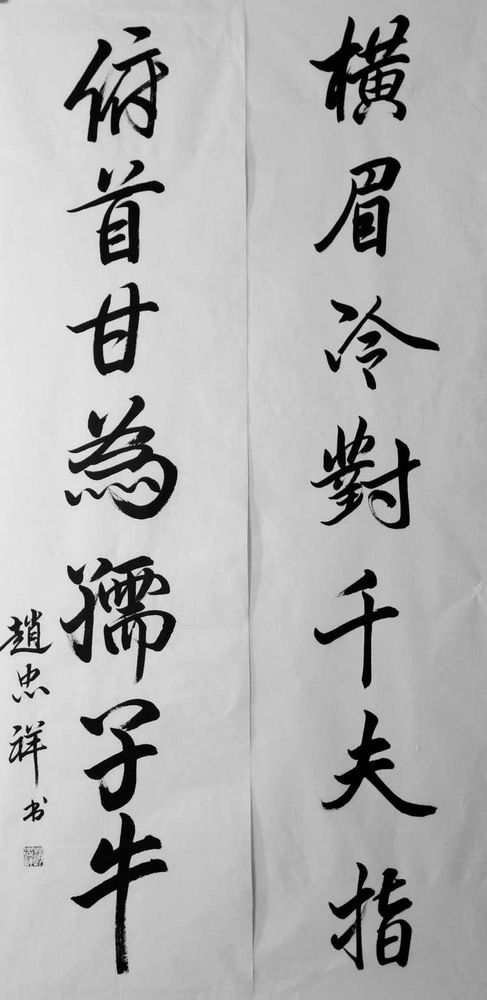 橫眉冷對千夫指
俯首甘為孺子牛
趙忠祥书